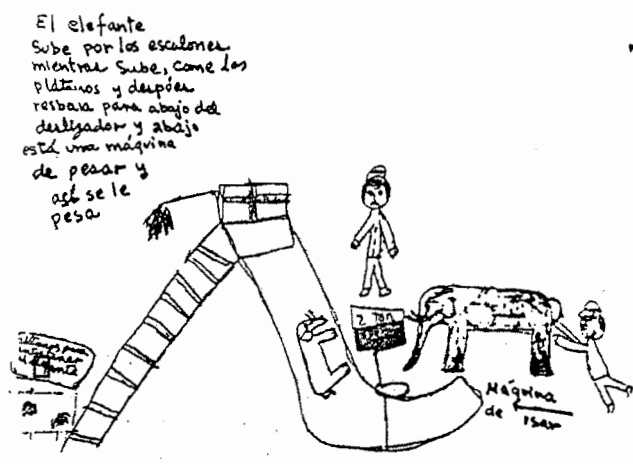 El elefante
Sube por los escalones
mientras Sube, come los
plátanos y despúes
resbala para abajo del
deslizador, y abajo
está una máquina
de pesar y
así se le
pesa
2 Ton
Máquina
de